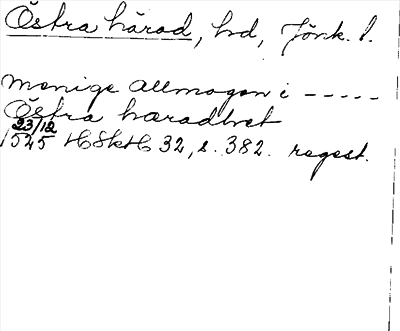 Östra härad, hd, Jönk. l.
Menige Allmogen i -----
Östra hæradhet
23/12
1525 HSkH 32, s. 382. regest.